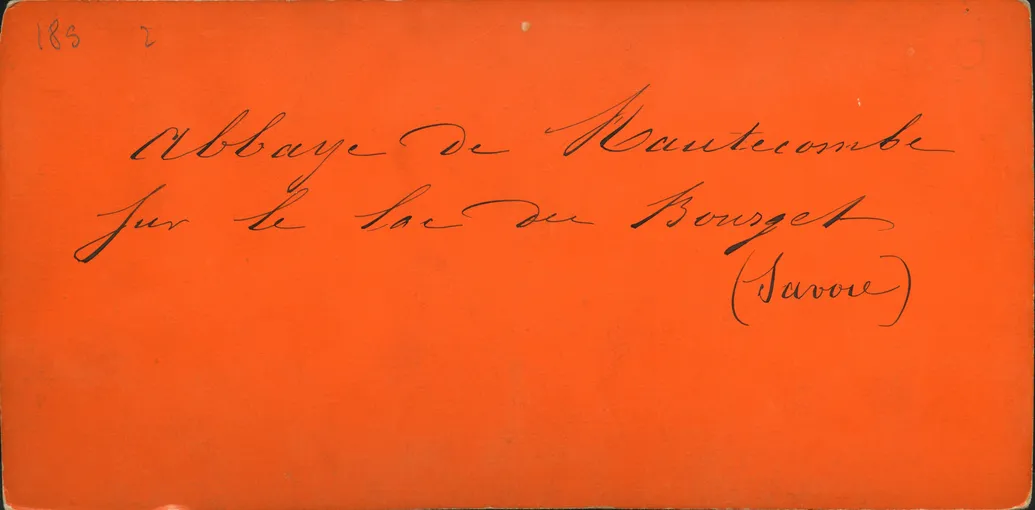 185 2
Abbaye de Hautecombe
sur le lac du Bourget
(Savoie)